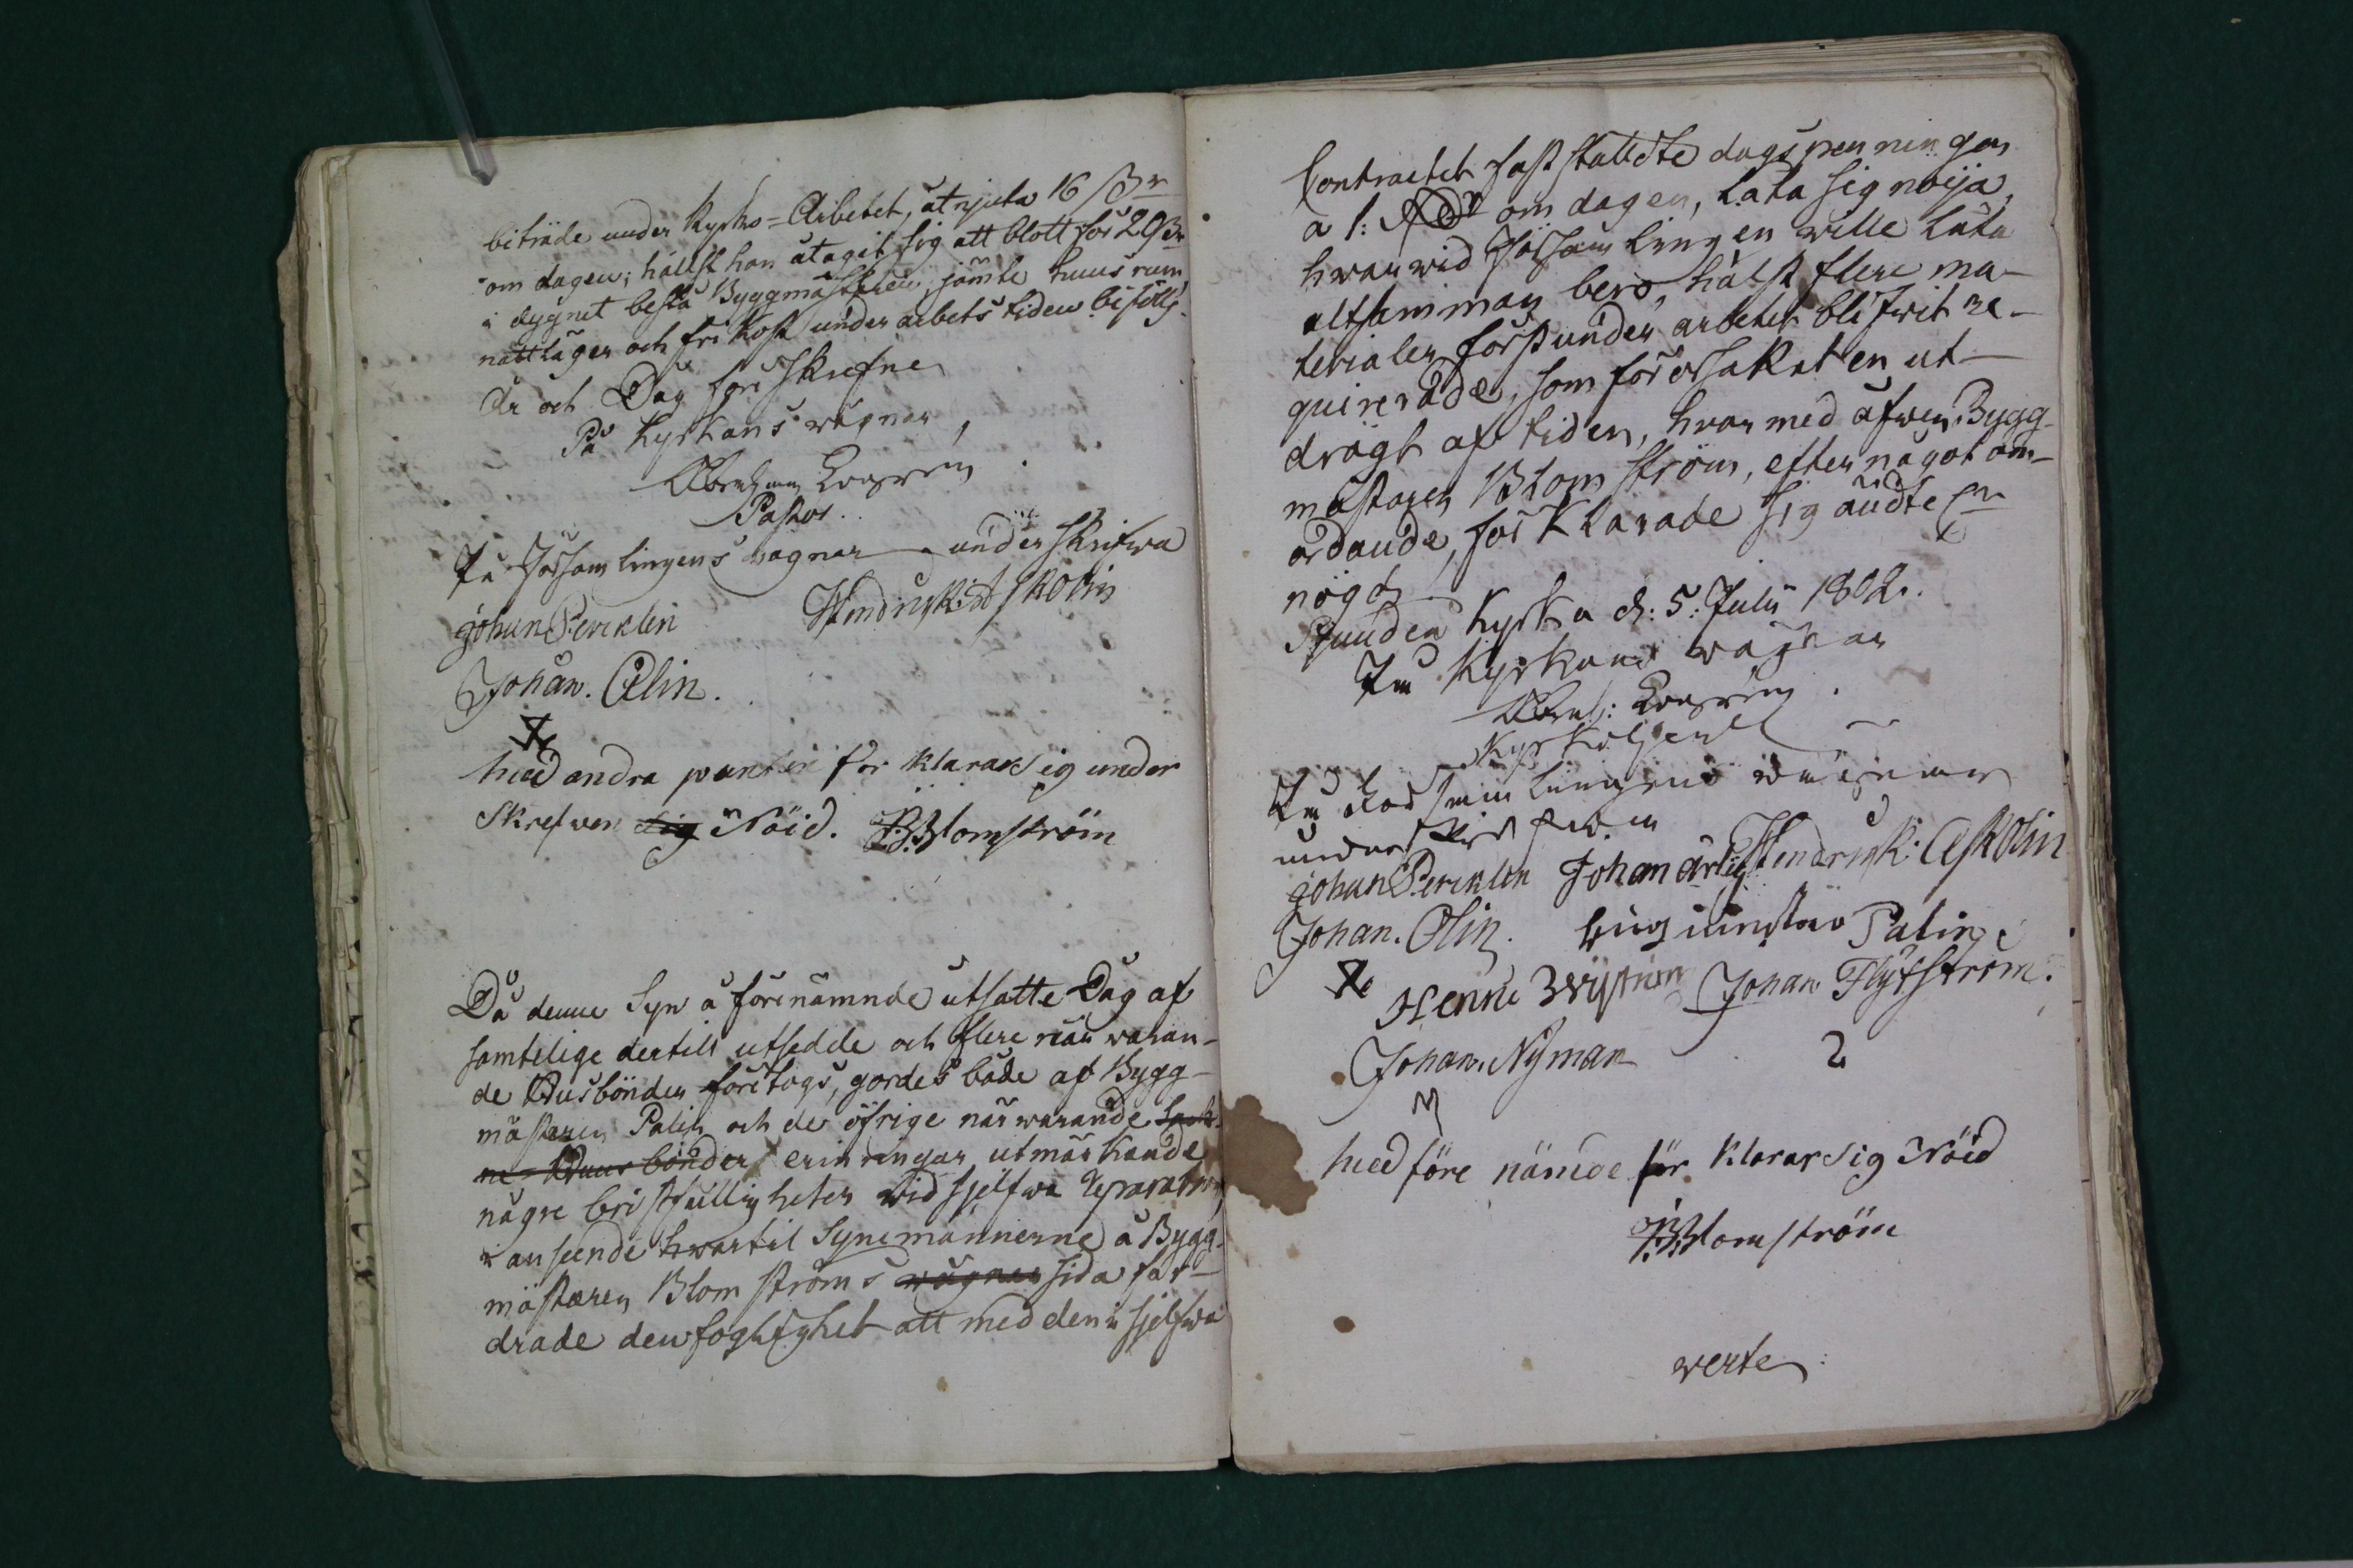 biträde under Kyrko-Arbetet, åtnjuta 16 ßr
om dagen; hälst han åtagit sig att blott för
i dygnet bestå Byggmästaren, jämte huus rum
nattläger och fri kost under arbets tiden
År och Dag förr skrefne
På Kyrkans wägnar,
Pastor.
På Församlingens wägnar underskrifwa
johan Pericklen
Johan. Ölin.
med andra punkten för klarar sig under
skrefwen sig Nöid. Blomström
Då denne Syn å förenämnde utsatte Dag af
samtelige dertill utsedde och flere när waran-
de Husbönder företogs, gordes både af Bygg-
mästaren Palin och de öfrige närwarande
bönder erinringar utmärkande
någre bristfälligheter wid sjelfwa Reparation,
i anseende hwartil Synemännerne å Bygg-
mästaren Blomströms wägnar sida for-
drade den foglighet att med den i sjelfwa
Contractet fast stälte dagspenningen
a 1: om dagen, låta sig nöija,
hwarwid Församlingen wille låta
altsamman bero, hälst flere ma-
terialer först under arbetet blifwit re-
quirerade, som förorsakat en ut-
drägt af tiden, hwar med äfwen Bygg-
mästaren Blomström, efter något om-
ordande, förklarade sig
nögd
Kyrka d: 5. Julii 1802.
På Kyrkans wägnar
På Församlingens wägnar
underskrifwa
johan Pericklen Johan ärlig Hendrick: Askolin
Johan. Ölin. Palin
Johan Flytström.
Johan. Nyman
2
med före nämde för klarar sig Nöid
Blomström
verte